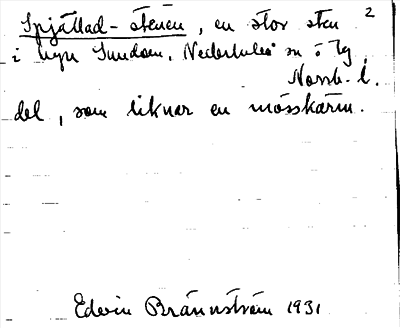 Spjällad-stenen, en stor sten 2
i byn Sundom, Nederluleå sn ö lg
Norrb. l.
del, som liknar en mösskärm.
Edvin Brännström 1931